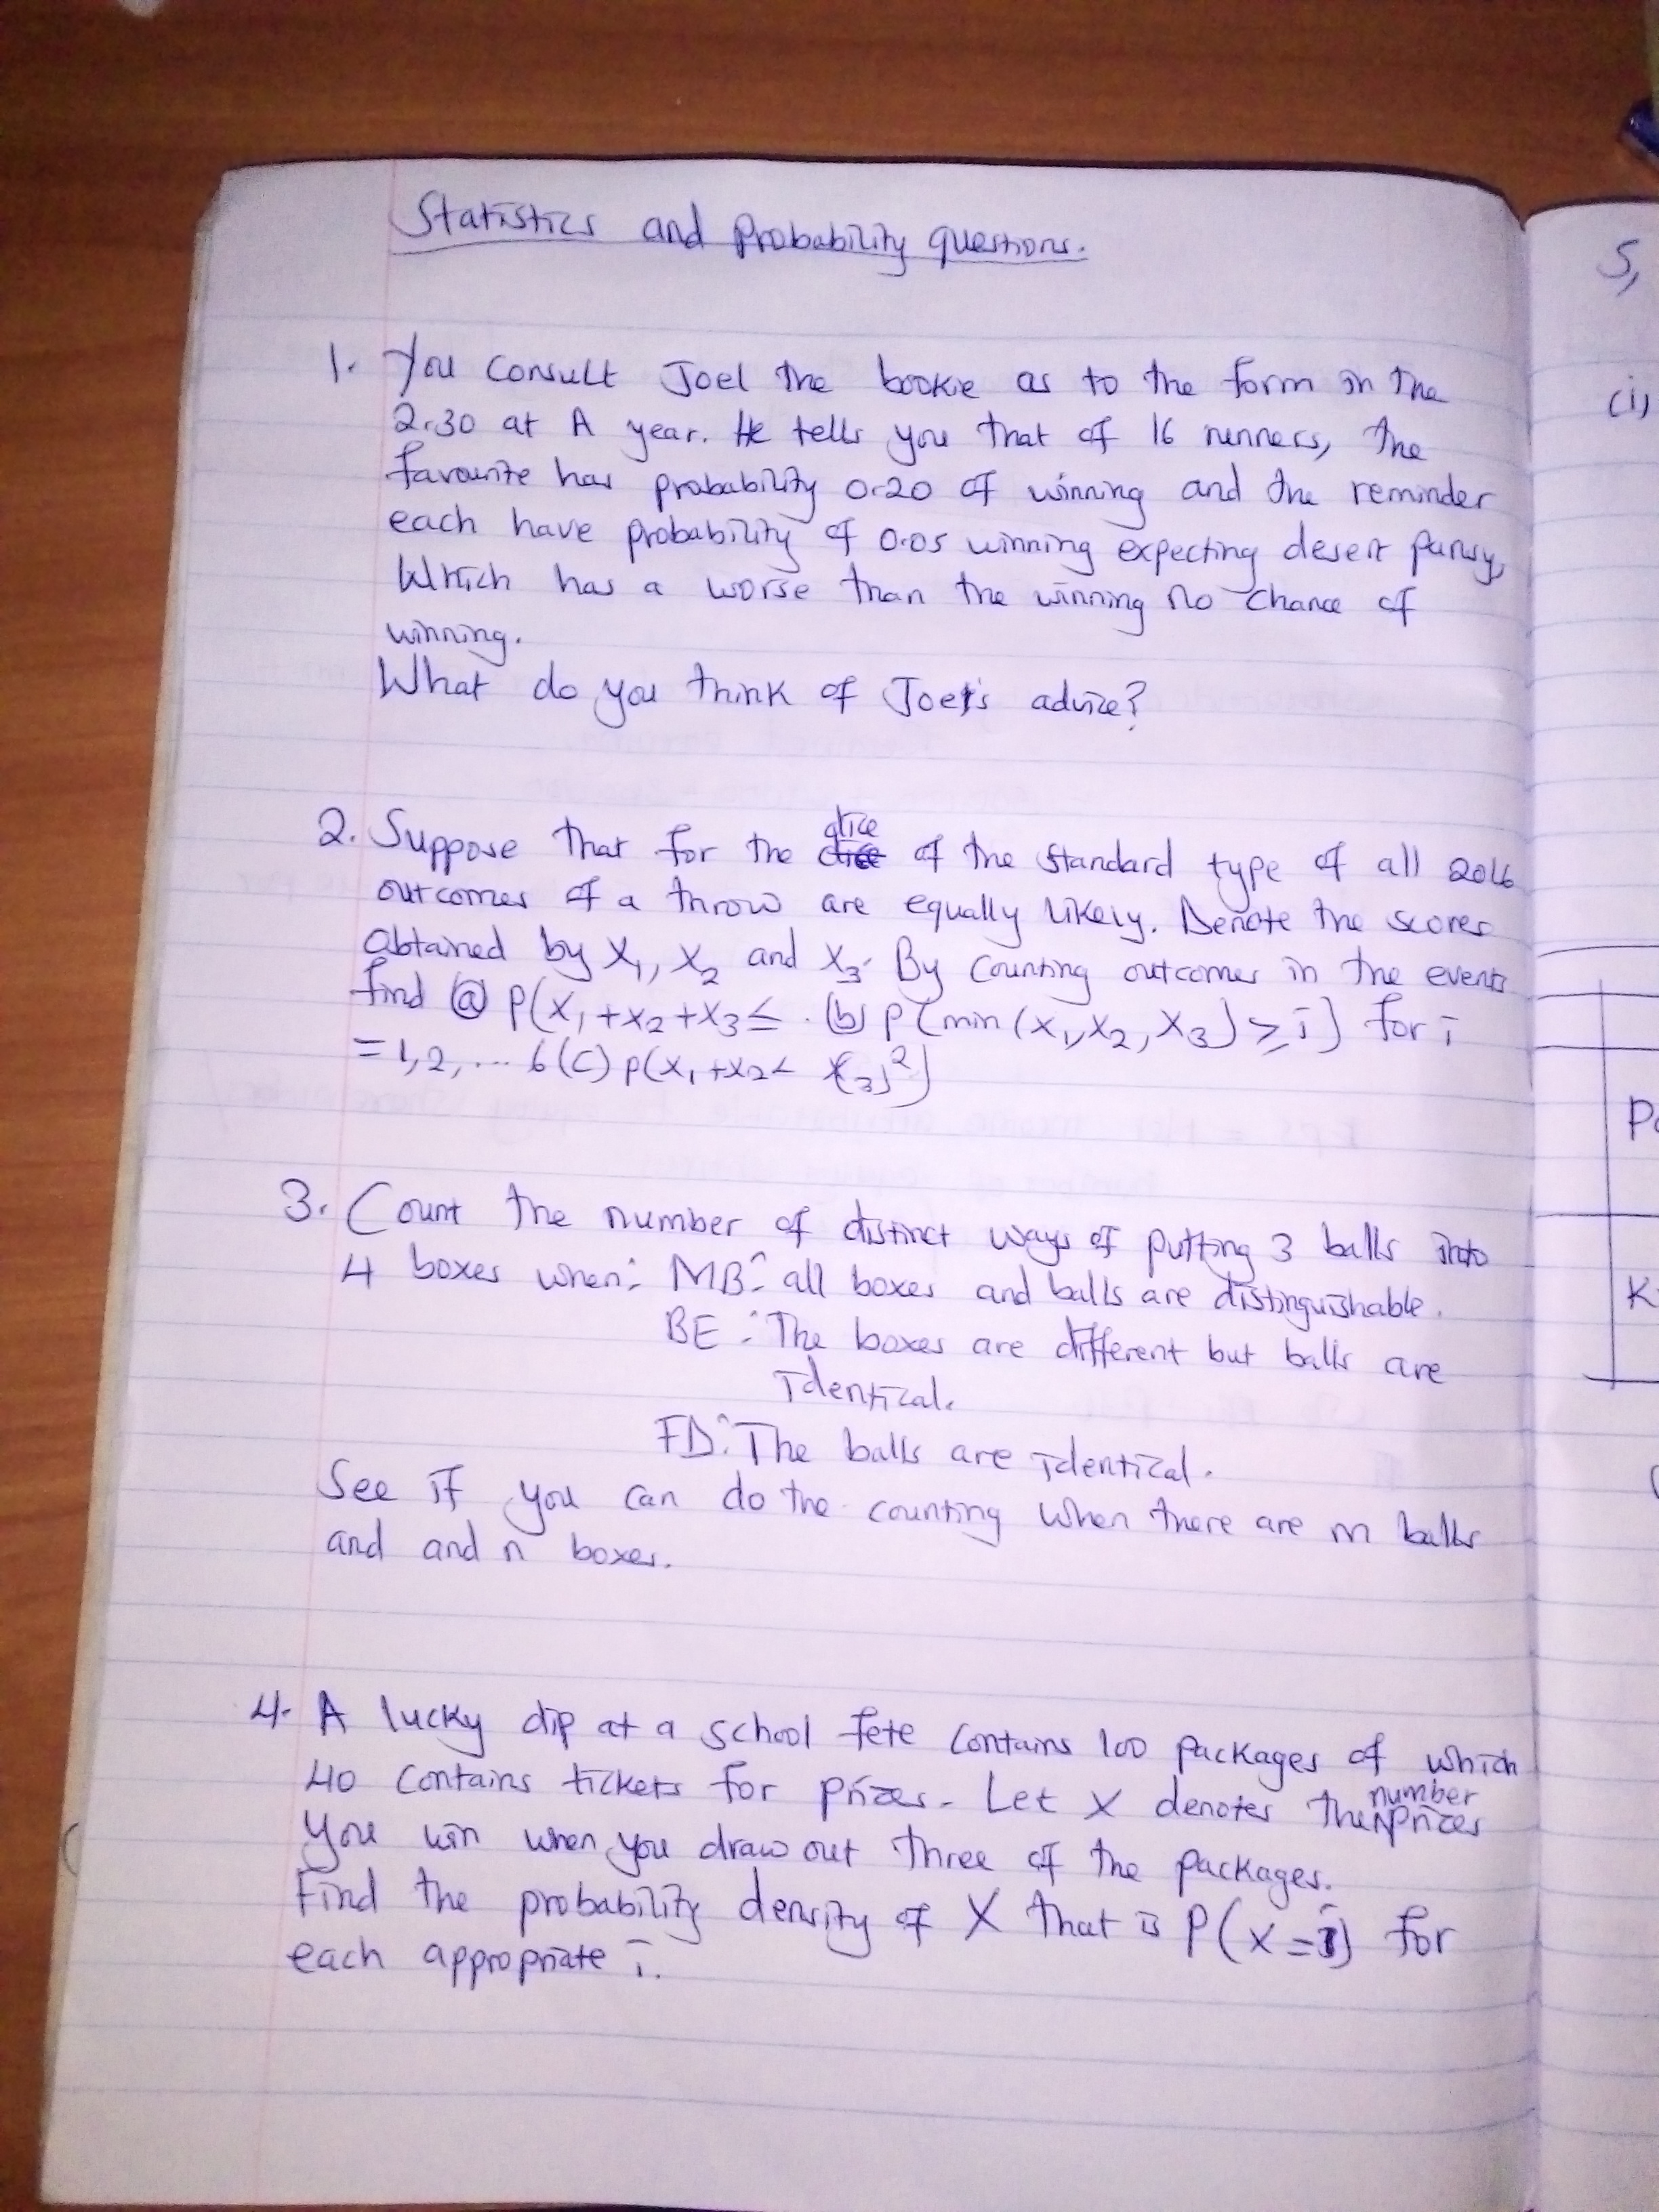 Statistics and probability questions.
1. You consult Joel the bookie as to the form in the
2.30 at A year. He tells you that of 16 runners, the
favourite has probability 0.20 of winning and the reminder
each have probability of 0.05 winning expecting desert pansy,
Which has a worse than the winning no chance of
winning.
What do you think of Joel's advice?
2. Suppose that for the dice of the standard type of all 2016
outcomes of a throw are equally likely. Denote the scores
obtained by X1, X2 and X3. By counting outcomes in the events
find (a) P(X1+X2+X3≤ . (b) P(min(X1,X2,X3)≥i) for i
=1,2,... 6 (c) P(X1+X2< X(3)²)
3. Count the number of distinct ways of putting 3 balls into
4 boxes when: MB: all boxes and balls are distinguishable.
BE: The boxes are different but balls are
identical.
FD: The balls are identical.
See if you can do the counting when there are m balls
and and n boxes.
4. A lucky dip at a school fete contains 100 packages of which
40 contains tickets for prizes. Let X denotes the number prizes
you win when you draw out three of the packages.
Find the probability density of X that is P(X=i) for
each appropriate i.
5,
(i)